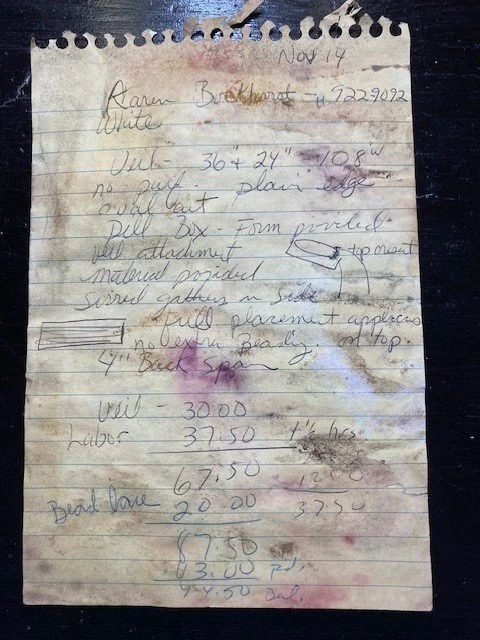 Nov 14
Karen Buckhurst - H 9229092
White
Veil - 36" + 24" 108"W
no puff. plain edge
oval cut
Pill Box - Form provided.
veil attachment top insert
material provided
Sirred gathers on side
full placement appliques
no extra Beading. on top.
4" Back Span
Veil - 30.00
Labor 37.50 1½ hrs.
67.50
Bead Done 20.00 3750
87.50
43.00 pd.
44.50 Bal.